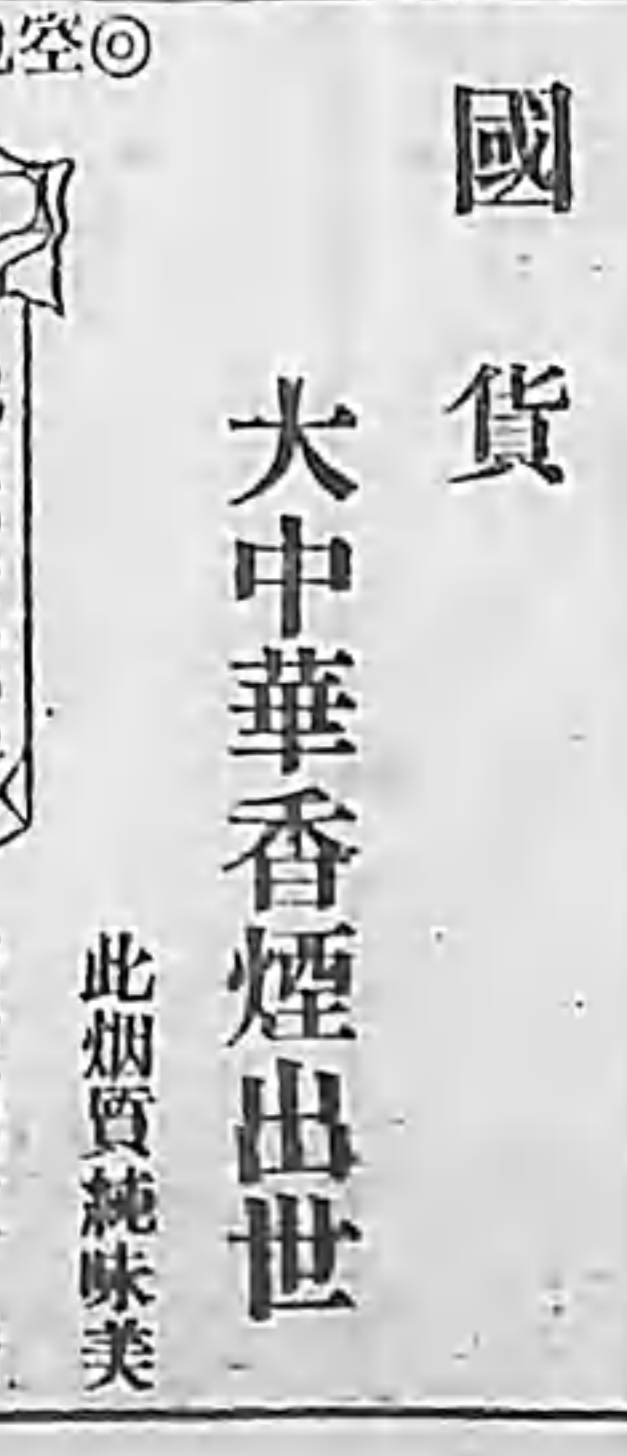 國貨
大中華香煙出世
此烟質純味美
◎空